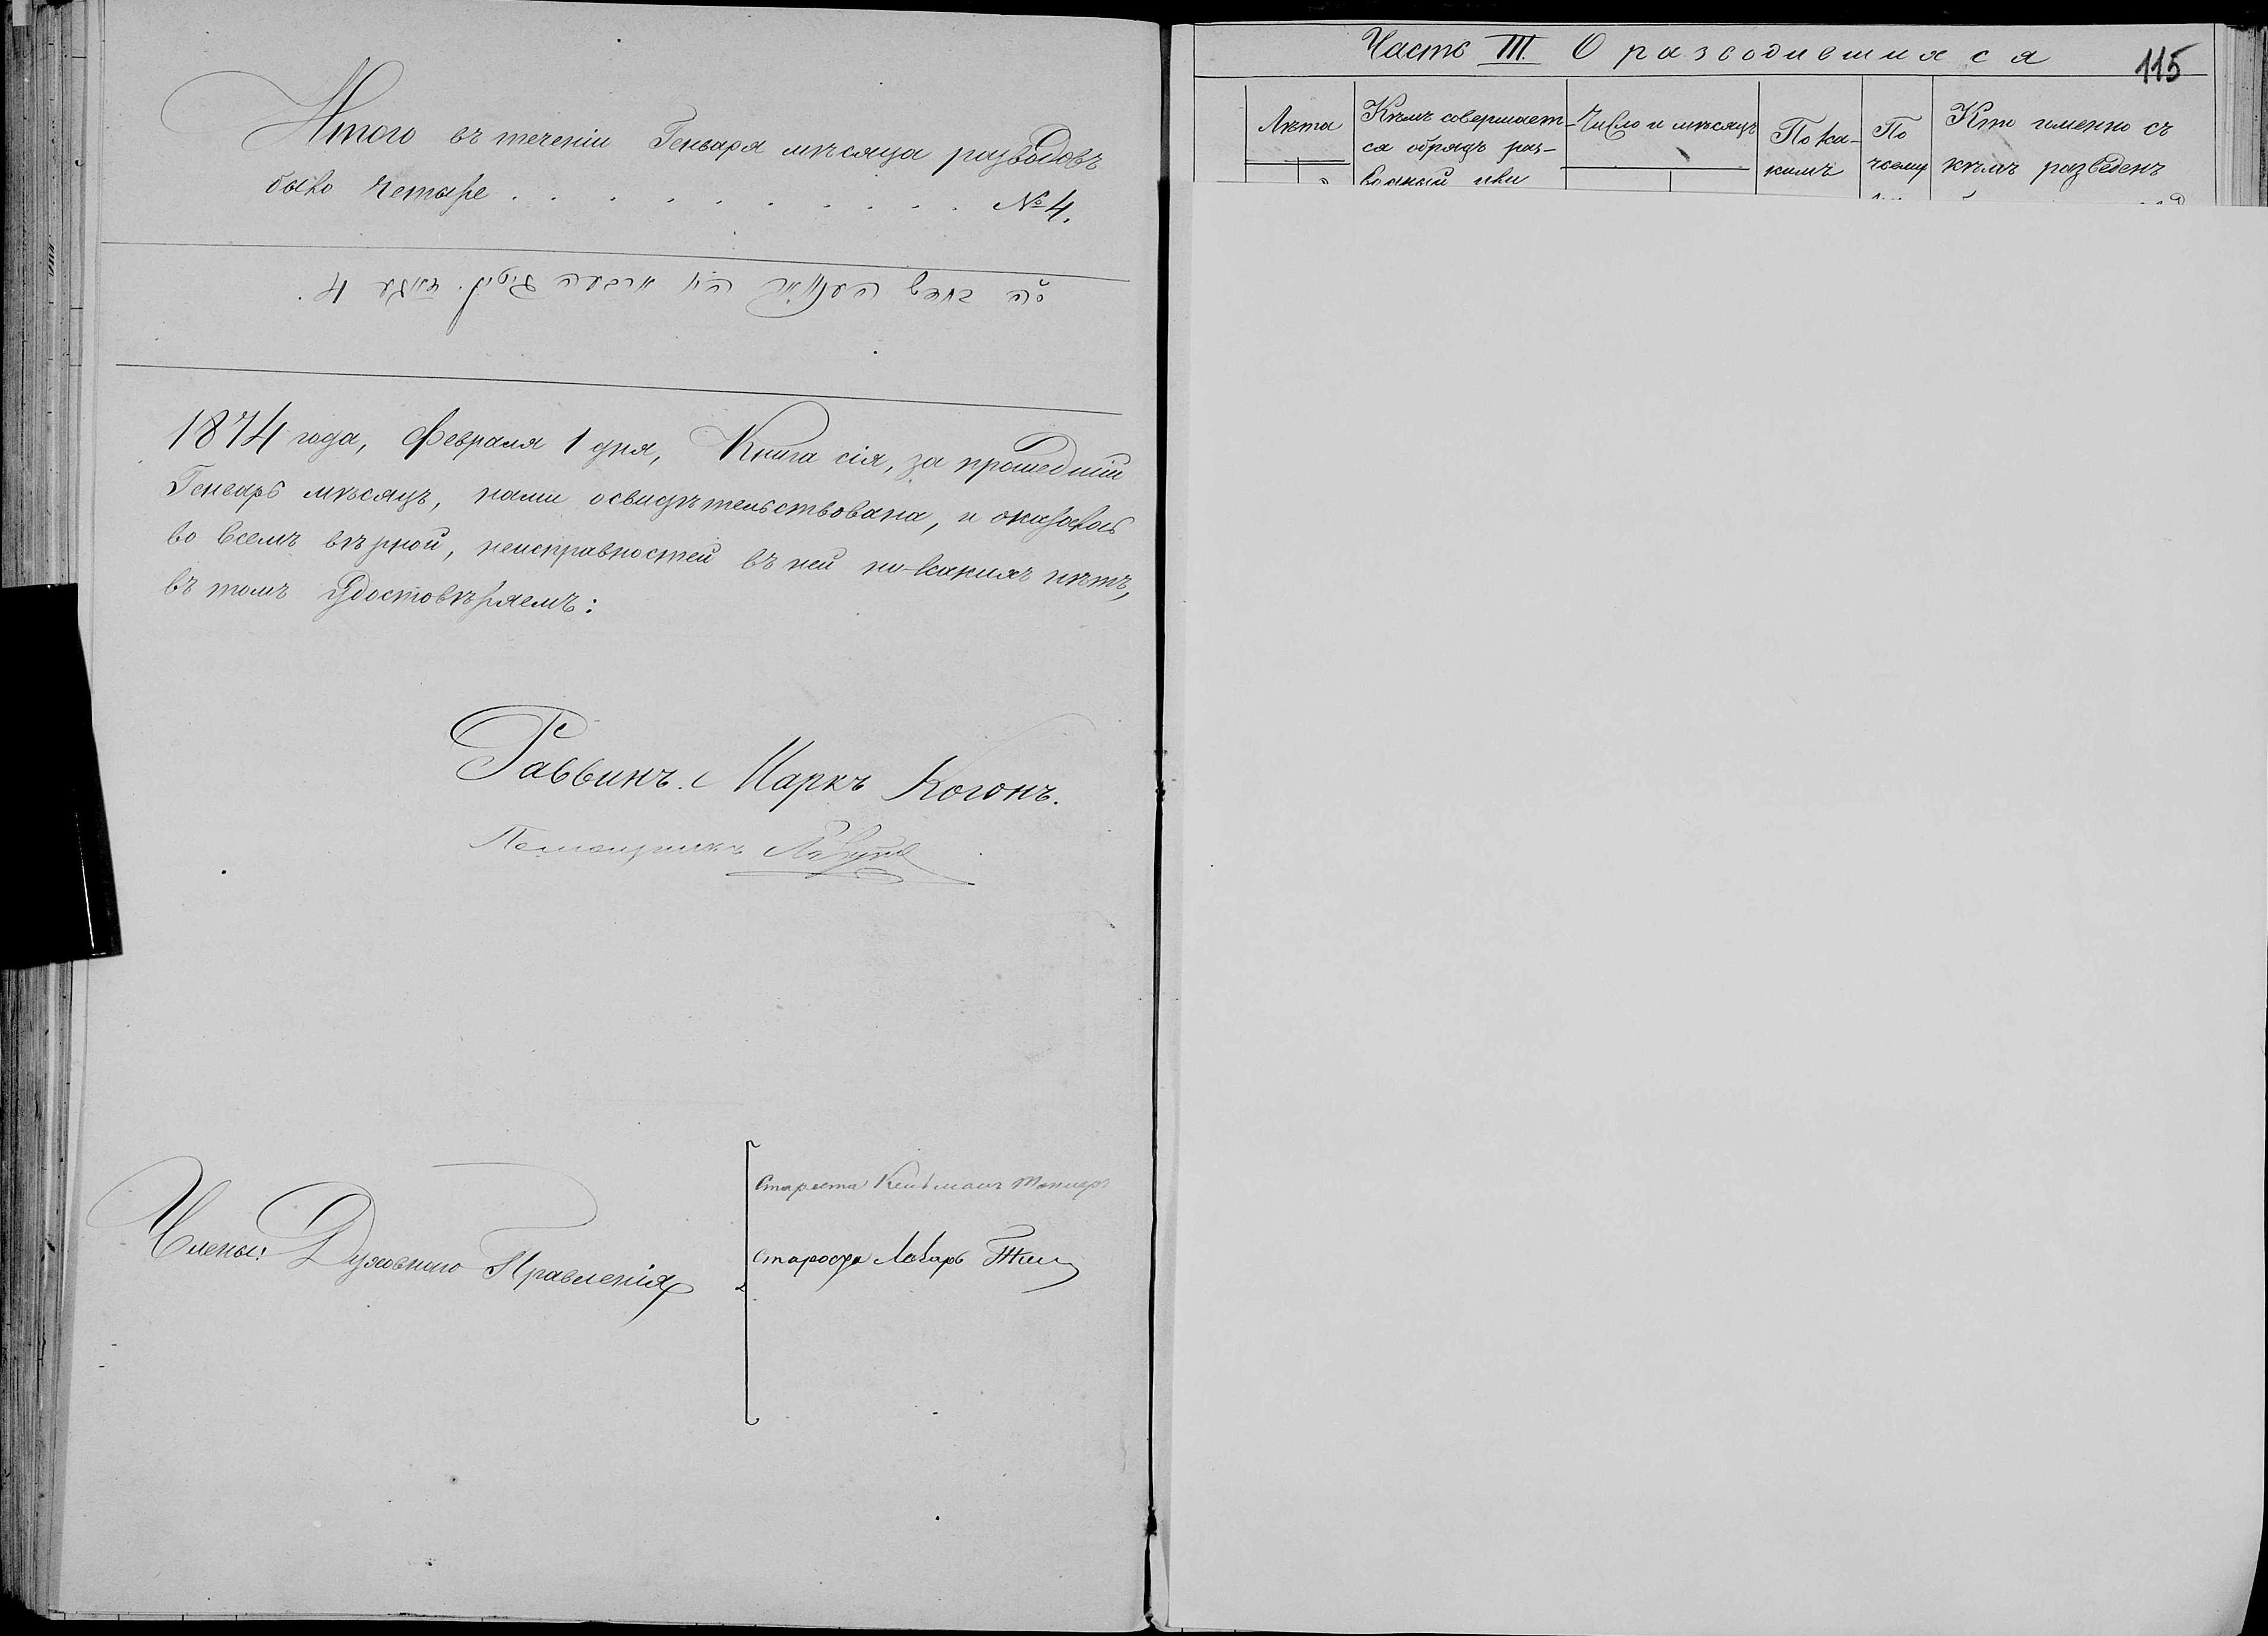 Итого въ теченіи Генваря мѣсяца разводовъ
было четыре . . . . . . . . . . . № 4.
1874 года, Февраля 1 дня, Книга сія, за прошедшій
Генварь мѣсяцъ, нами освидѣтельствована, и оказалась
во всемъ вѣрной, неисправностей въ ней ни-какихъ нѣтъ,
въ томъ Удостовѣряемъ:
Раввинъ. Маркъ Когонъ.
Помощникъ
Члены: Духовнаго Правленія
Староста Кельманъ
Староста Лазарь
Часть III. О разводившихся
115
Лѣта
Кѣмъ совершает-
ся обрядъ раз-
водный или
Число и мѣсяцъ
По ка-
кимъ
По
чьему
Кто именно съ
кѣмъ разведенъ